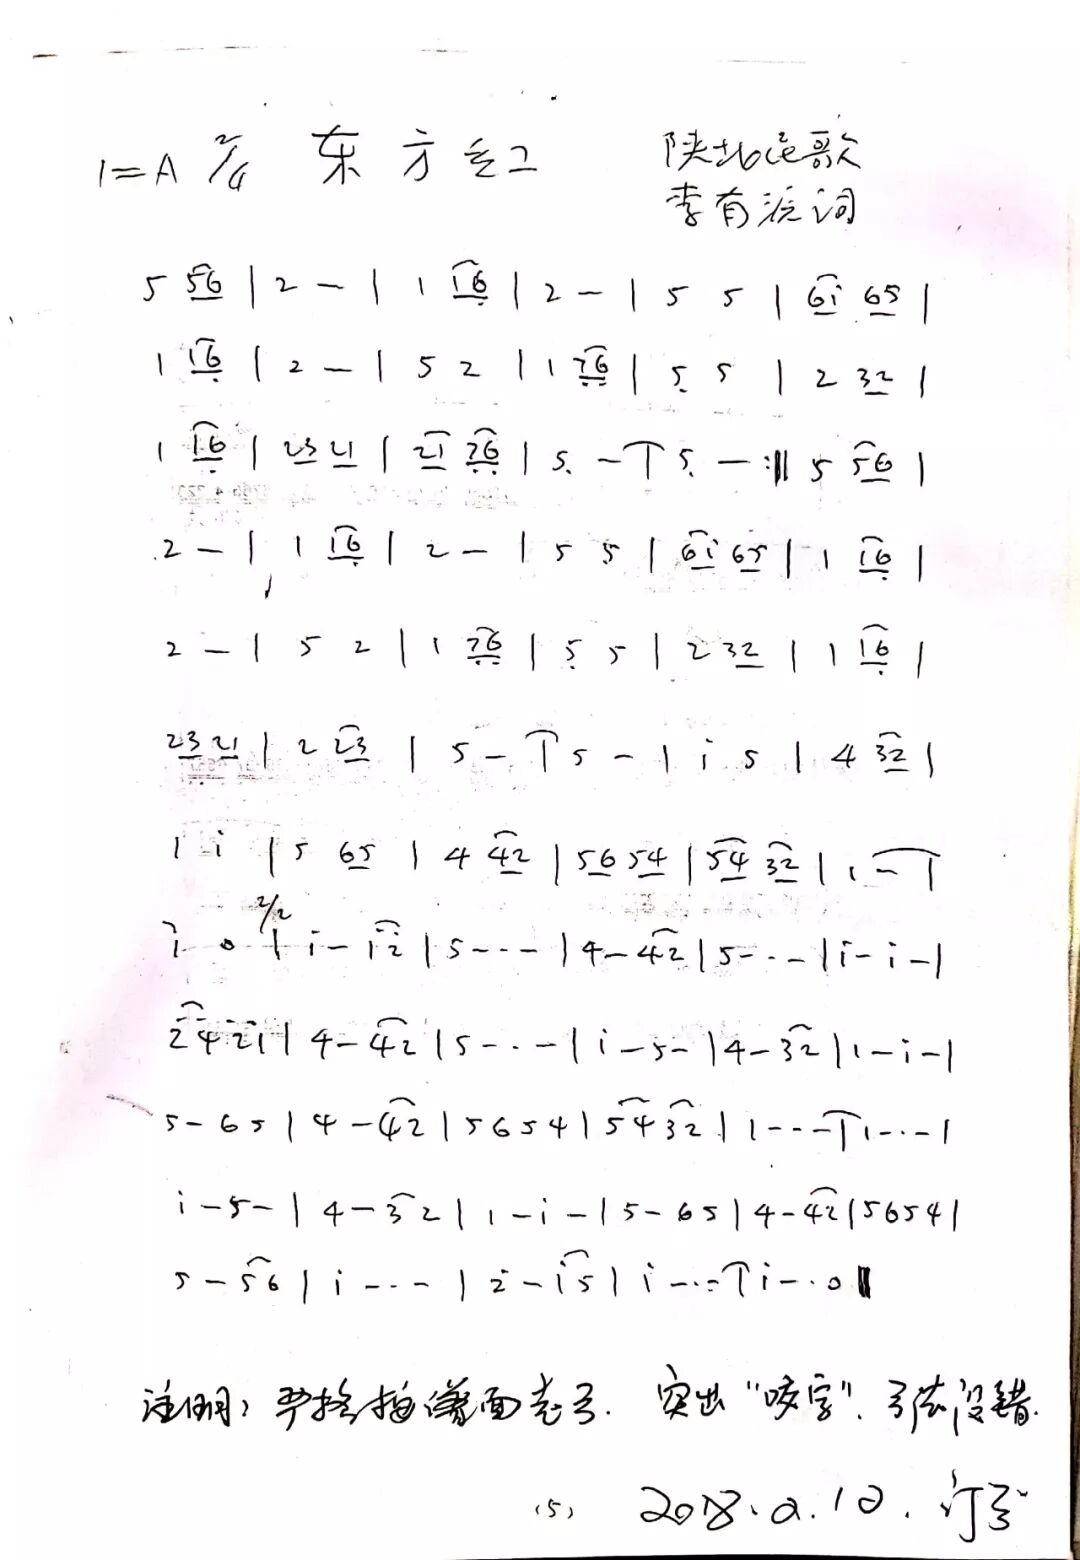 1=A 2/4 东方红 陕北民歌
李有源词
5 56 | 2 - | 1 16 | 2 - | 5 5 | 6i 65 |
1 16 | 2 - | 5 2 | 1 76 | 5 5 | 2 32 |
1 16 | 23 21 | 21 76 | 5 - | 5 - :‖ 5 56 |
2 - | 1 16 | 2 - | 5 5 | 6i 65 | 1 16 |
2 - | 5 2 | 1 76 | 5 5 | 2 32 | 1 16 |
23 21 | 2 23 | 5 - | 5 - | i 5 | 4 32 |
1 i | 5 65 | 4 42 | 56 54 | 54 32 | 1 - |
1 0 | 2/2 i - i2 | 5 - - - | 4 - 42 | 5 - - - | i - i - |
24 2i | 4 - 42 | 5 - - - | i - 5 - | 4 - 32 | 1 - i - |
5 - 65 | 4 - 42 | 5654 | 5432 | 1 - - - | 1 - - - |
i - 5 - | 4 - 32 | 1 - i - | 5 - 65 | 4 - 42 | 5654 |
5 - 56 | i - - - | 2 - i5 | i - - - | i - - 0 ‖
注明：严格按谱面走弓．突出"咬字"．弓法没错．
(5) 2018.2.12．订弓